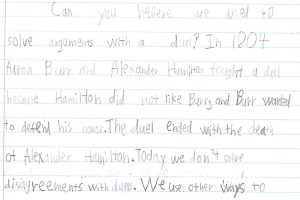 Can you believe we used to
solve arguments with a dual? In 1804
Aaron Burr and Alexander Hamilton fought a duel
because Hamilton did not like Burr, and Burr wanted
to defend his honor. The duel ended with the death
of Alexander Hamilton. Today we don't solve
disagreements with duels. We use other ways to